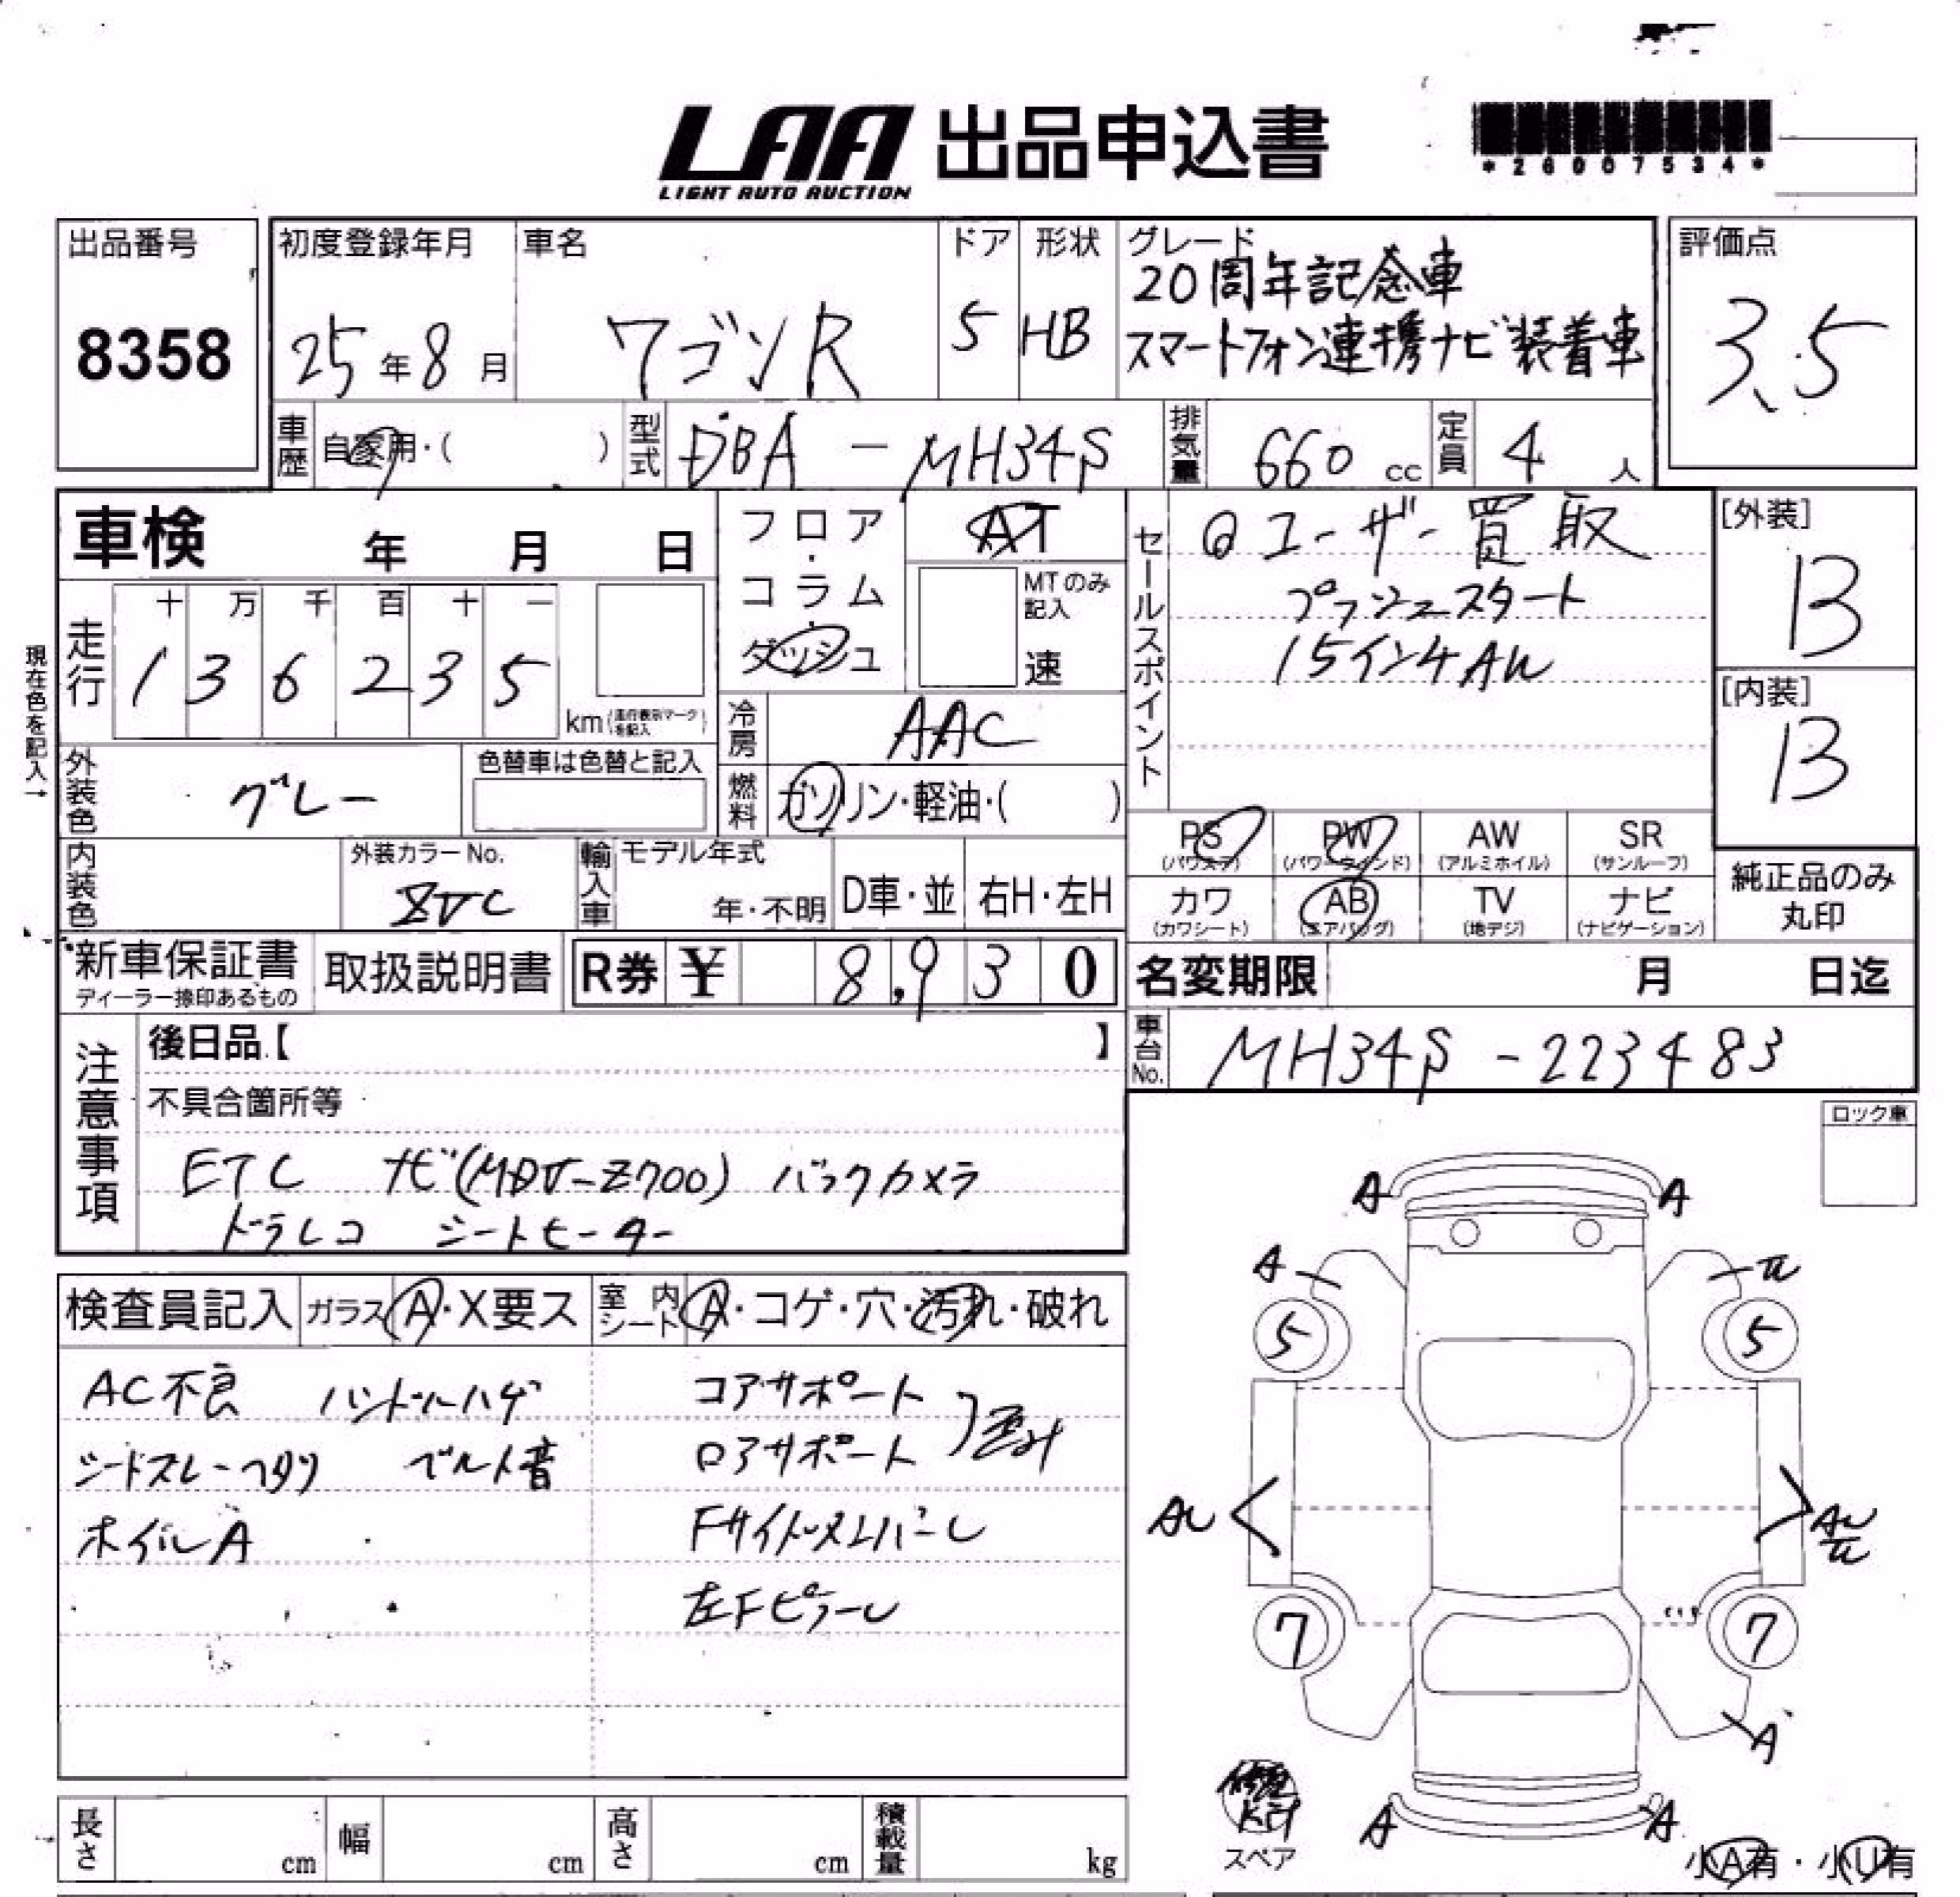 LAA 出品申込書
LIGHT AUTO AUCTION
*26007534*
出品番号
8358
初度登録年月
25年8月
車名
ワゴンR
ドア
5
形状
HB
グレード
20周年記念車
スマートフォン連携ナビ装着車
評価点
3.5
車歴
自家用・( )
型式
DBA-MH34S
排気量
660 cc
定員
4人
車検 年 月 日
フロア・コラム・ダッシュ
AT
MTのみ記入
速
セールスポイント
@ユーザー買取
プッシュスタート
15インチAW
[外装]
B
[内装]
B
現在色を記入→
走行
十 万 千 百 十 一
1 3 6 2 3 5
km(走行表示マークを記入)
冷房
AAC
外装色
グレー
色替車は色替と記入
燃料
ガソリン・軽油・( )
PS (パワステ)
PW (パワーウインド)
AW (アルミホイル)
SR (サンルーフ)
カワ (カワシート)
AB (エアバッグ)
TV (地デジ)
ナビ (ナビゲーション)
純正品のみ
丸印
内装色
外装カラーNo.
輸入車
モデル年式
年・不明
D車・並
右H・左H
新車保証書
ディーラー捺印あるもの
取扱説明書
R券 ¥ 8,930
名変期限 月 日迄
車台No.
MH34S-223483
注意事項
後日品【 】
不具合箇所等
ETC ナビ(MDV-Z700) バックカメラ
ドラレコ シートヒーター
ロック車
検査員記入
ガラス A・X要ス
室内シート A・コゲ・穴・汚れ・破れ
AC不良 ハンドルハゲ
ベルト音
ホイルA
コアサポート
ロアサポート
左Fピラー
A A
A
5 5
7 7
A
A A
スペア
小A有・小U有
長さ cm
幅 cm
高さ cm
積載量 kg